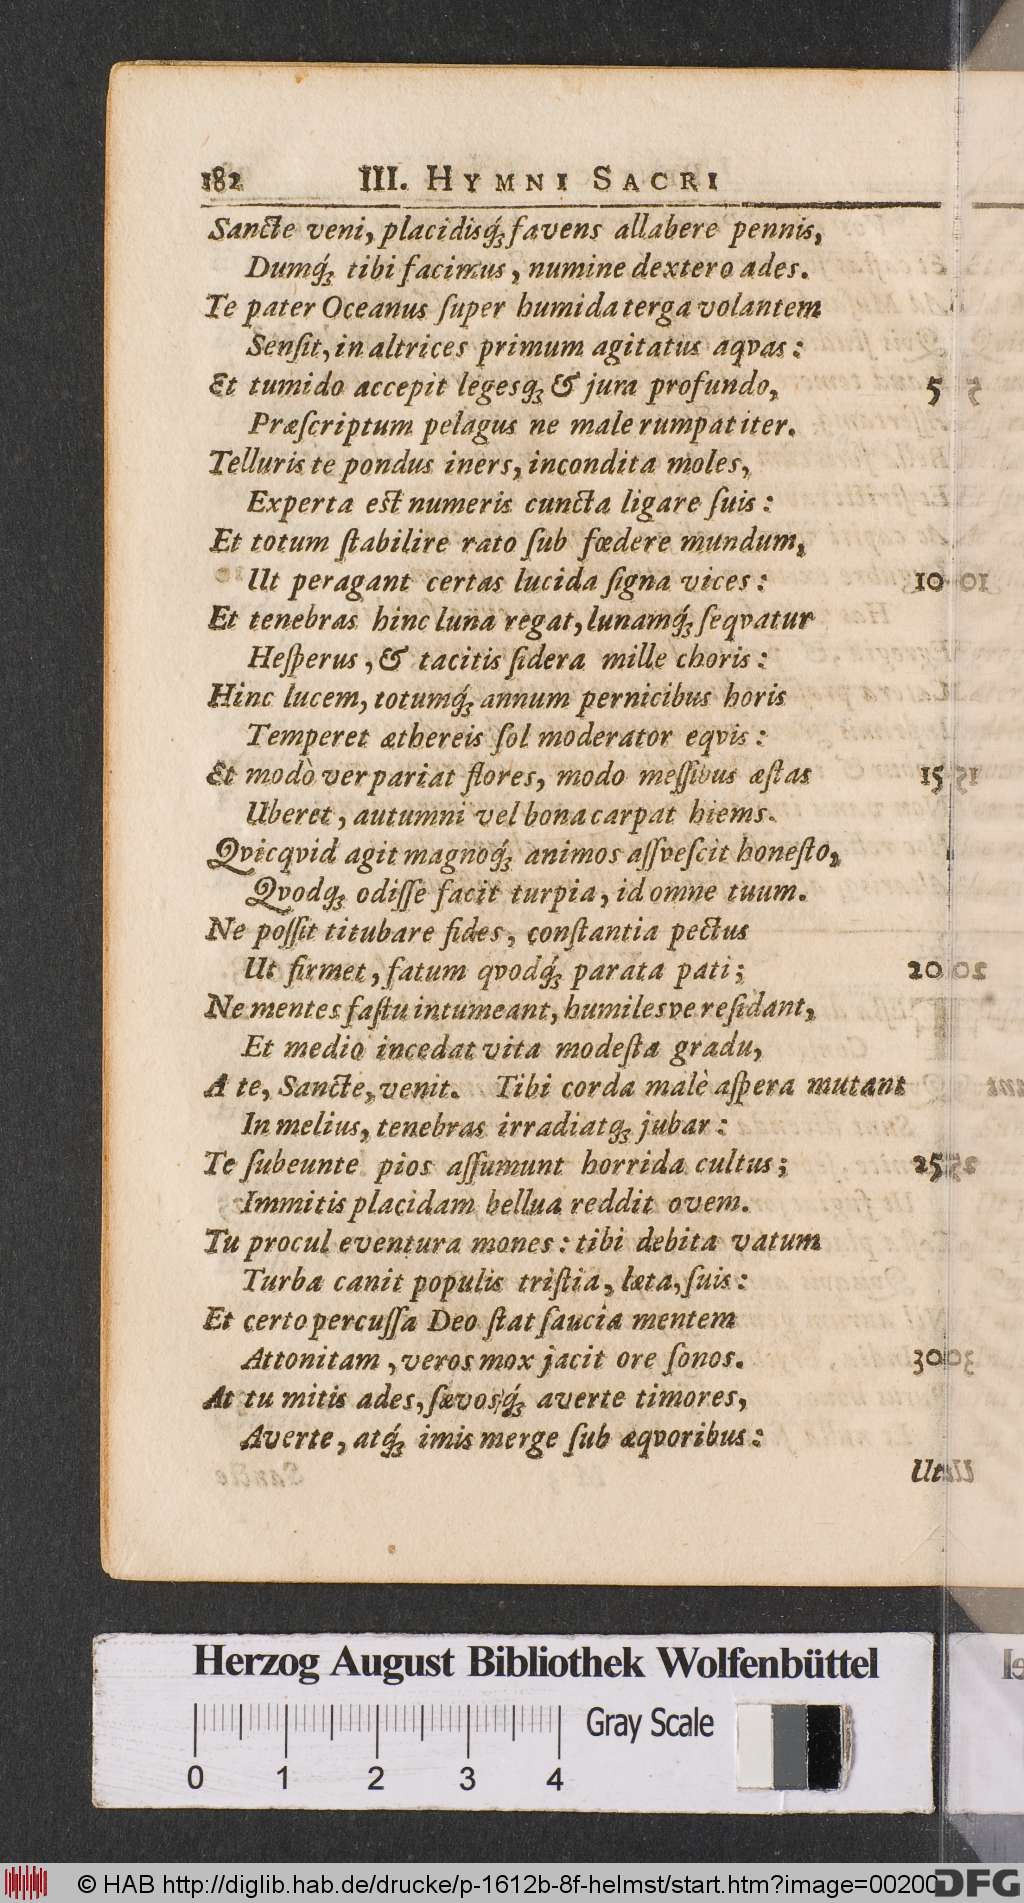 182 III. HYMNI SACRI
Sancte veni, placidisq́; favens allabere pennis,
Dumq́; tibi facimus, numine dextero ades.
Te pater Oceanus ſuper humida terga volantem
Senſit, in altrices primum agitatus aqvas:
Et tumido accepit legesq; & jura profundo, 5
Præſcriptum pelagus ne male rumpat iter.
Telluris te pondus iners, incondita moles,
Experta est numeris cuncta ligare ſuis:
Et totum ſtabilire rato ſub fœdere mundum,
Ut peragant certas lucida ſigna vices: 10
Et tenebras hinc luna regat, lunamq́; ſeqvatur
Heſperus, & tacitis ſidera mille choris:
Hinc lucem, totumq́; annum pernicibus horis
Temperet æthereis ſol moderator eqvis:
Et modò ver pariat flores, modo meſſibus æſtas 15
Uberet, autumni vel bona carpat hiems.
Qvicqvid agit magnoq́; animos aſſveſcit honeſto,
Qvodq; odiſſe facit turpia, id omne tuum.
Ne poſſit titubare fides, conſtantia pectus
Ut firmet, fatum qvodq́; parata pati; 20
Ne mentes faſtu intumeant, humilesve reſidant,
Et medio incedat vita modeſta gradu,
A te, Sancte, venit. Tibi corda malè aſpera mutant
In melius, tenebras irradiatq; jubar:
Te ſubeunte pios aſſumunt horrida cultus; 25
Immitis placidam bellua reddit ovem.
Tu procul eventura mones: tibi debita vatum
Turba canit populis triſtia, læta, ſuis:
Et certo percuſſa Deo ſtat ſaucia mentem
Attonitam, veros mox jacit ore ſonos. 30
At tu mitis ades, ſævosq́; averte timores,
Averte, atq́; imis merge ſub æqvoribus:
Ut
Herzog August Bibliothek Wolfenbüttel
Gray Scale
0 1 2 3 4
© HAB http://diglib.hab.de/drucke/p-1612b-8f-helmst/start.htm?image=00200
DFG